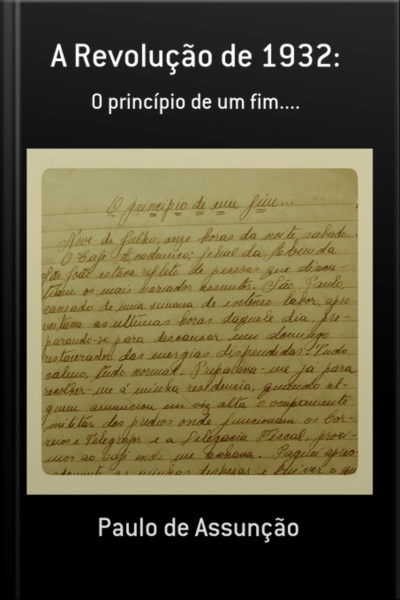 A Revolução de 1932:
O princípio de um fim....
O princípio de um fim...
Nove de Julho, onze horas da noite, sabado...
O Café Academico, festival da Avenida
São João estava repleto de pessoas que discu-
tiam os mais variados assuntos. São Paulo,
cansado de uma semana de intenso labor, apro-
veitava as ultimas horas daquele dia pre-
parando-se para descansar num domingo
restaurador das energias dispendidas. Tudo
calmo, tudo normal. Preparava-me já para
recolher-me á minha residencia, quando al-
guem anunciou em voz alta o ocupamento
militar dos predios onde funcionam os Cor-
reios e Telegrafos e a Delegacia Fiscal, proxi-
mos ao café onde me achava. Paguei apres-
sadamente as minhas despesas e
Paulo de Assunção